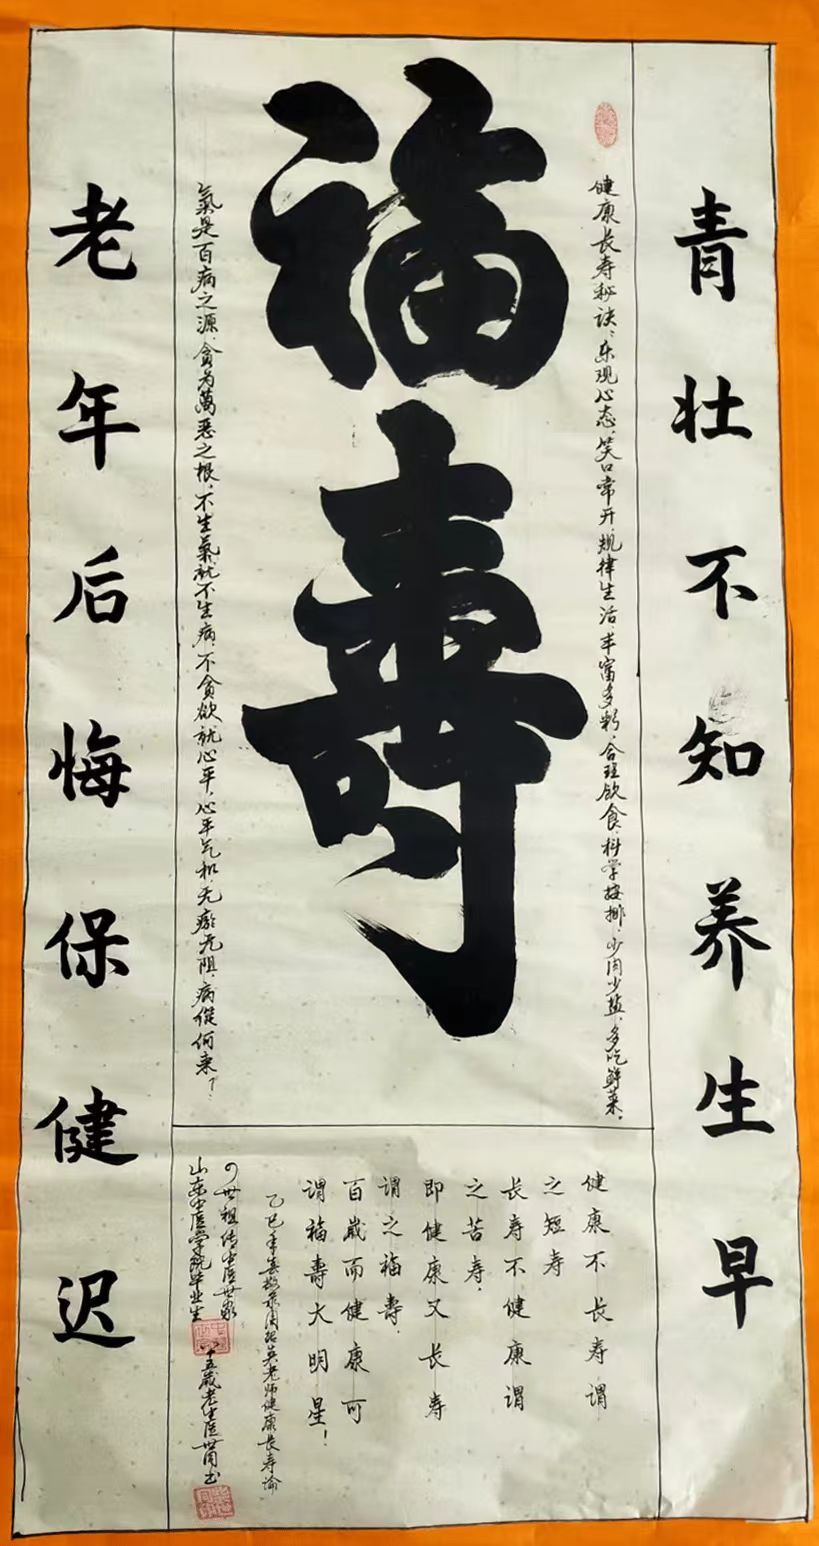 青壮不知养生早
健康长寿秘诀：乐观心态，笑口常开，规律生活，丰富多彩，合理飲食，科学按排，少肉少盐，多吃鲜菜。
福壽
氣是百病之源，貪为萬恶之根，不生氣就不生病，不貪欲就心平，心平气和，无瘀无阻，病從何来？
老年后悔保健迟
健康不长寿谓
之短寿
长寿不健康谓
之苦寿，
即健康又长寿
谓之福壽，
百歲而健康可
谓福壽大明星！
乙巳年春敬录周绍英老师健康长寿论
四世祖传中医世家
山东中医学院毕业生
八十五歲老中医世周书